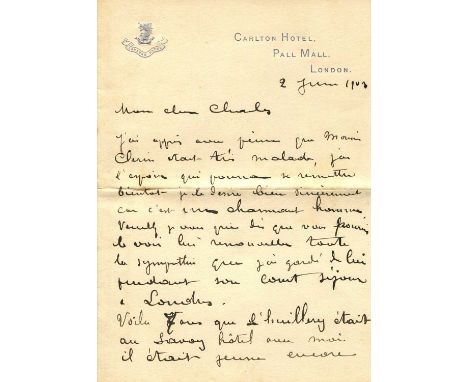 CARLTON HOTEL,
PALL MALL,
LONDON.
2 Juin 1903
Mon cher Charles
J'ai appris avec peine que
était très malade, j'ai
l'espoir qui pourra se remettre
bientot je le desire bien sincèrement
car c'est un charmant homme
Veuillez je vous prie dès que vous pourrez
le voir lui renouveller toute
la sympathie que j'ai gardé de lui
pendant son court séjour
à Londres.
Voila 7 ans que l'huillery était
au Savoy hôtel avec moi
il était jeune encore